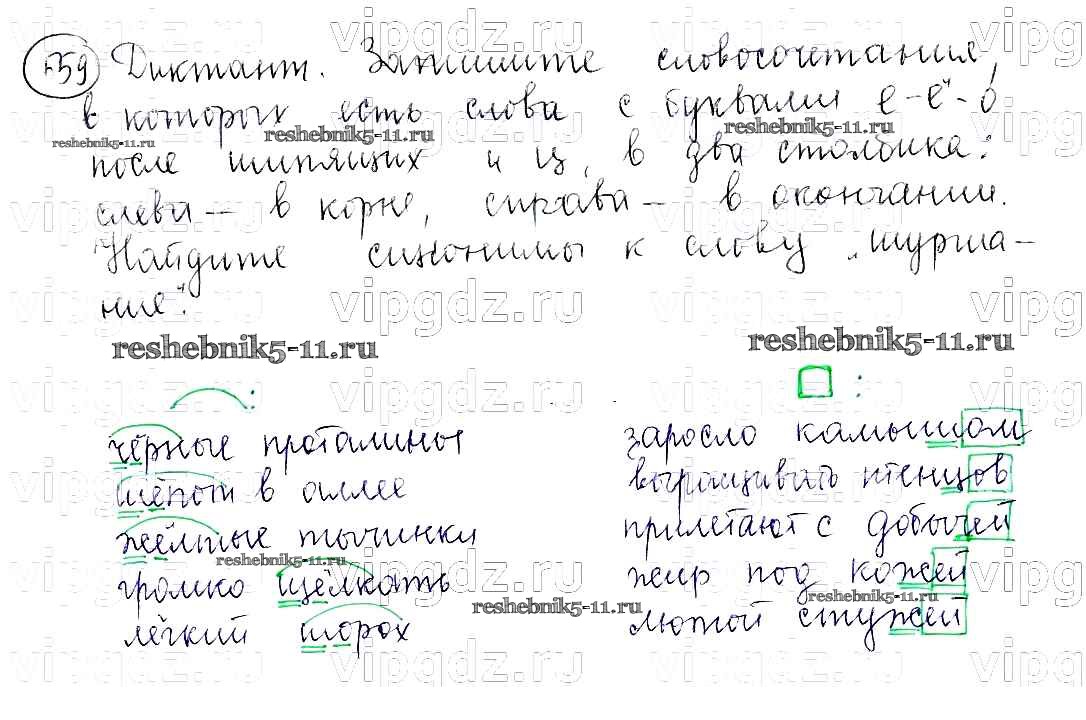 759 Диктант. Запишите словосочетания,
в которых есть слова с буквами е-ё-о
после шипящих и ц, в два столбика:
слева — в корне, справа — в окончании.
Найдите синонимы к слову „шурша-
ние".
:
чёрные проталины
шёпот в аллее
жёлтые тычинки
громко щёлкать
лёгкий шорох
:
заросло камышом
выращивать птенцов
прилетают с добычей
жир под кожей
лютой стужей
vipgdz.ru
reshebnik5-11.ru